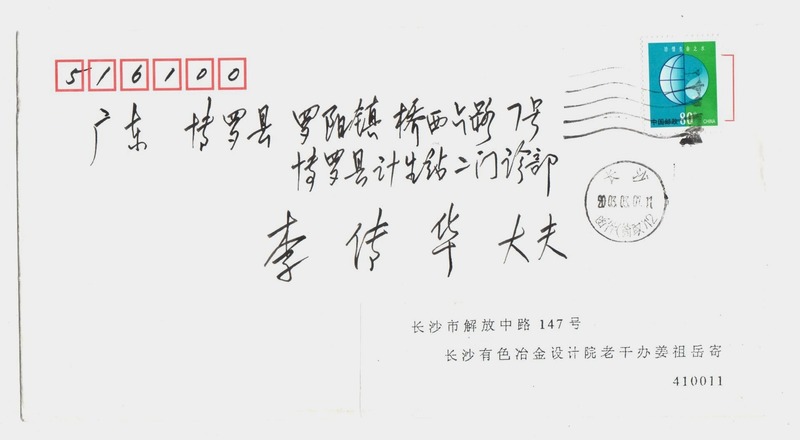 516100
广东 博罗县 罗阳镇 桥西六路7号
博罗县计生站二门诊部
李传华 大夫
中国邮政 80
CHINA
长沙市解放中路147号
长沙有色冶金设计院老干办姜祖岳寄
410011